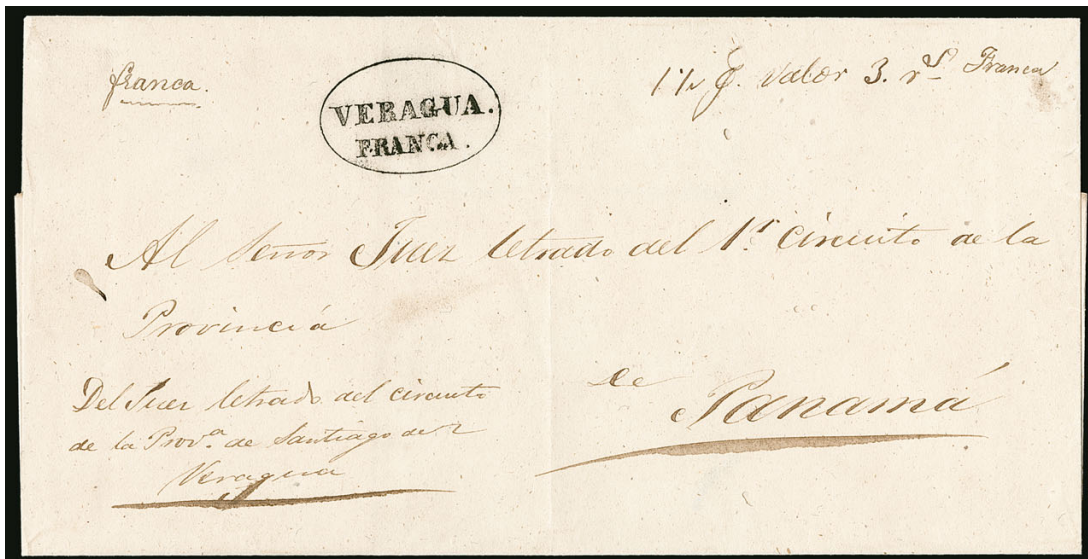 franca.
VERAGUA.
FRANCA.
Valor 3. rs Franca
Al Señor Juez letrado del 1r. Circuito de la
Provincia
de
Panamá
Del Juez letrado del circuito
de la Prova. de Santiago de
Veragua